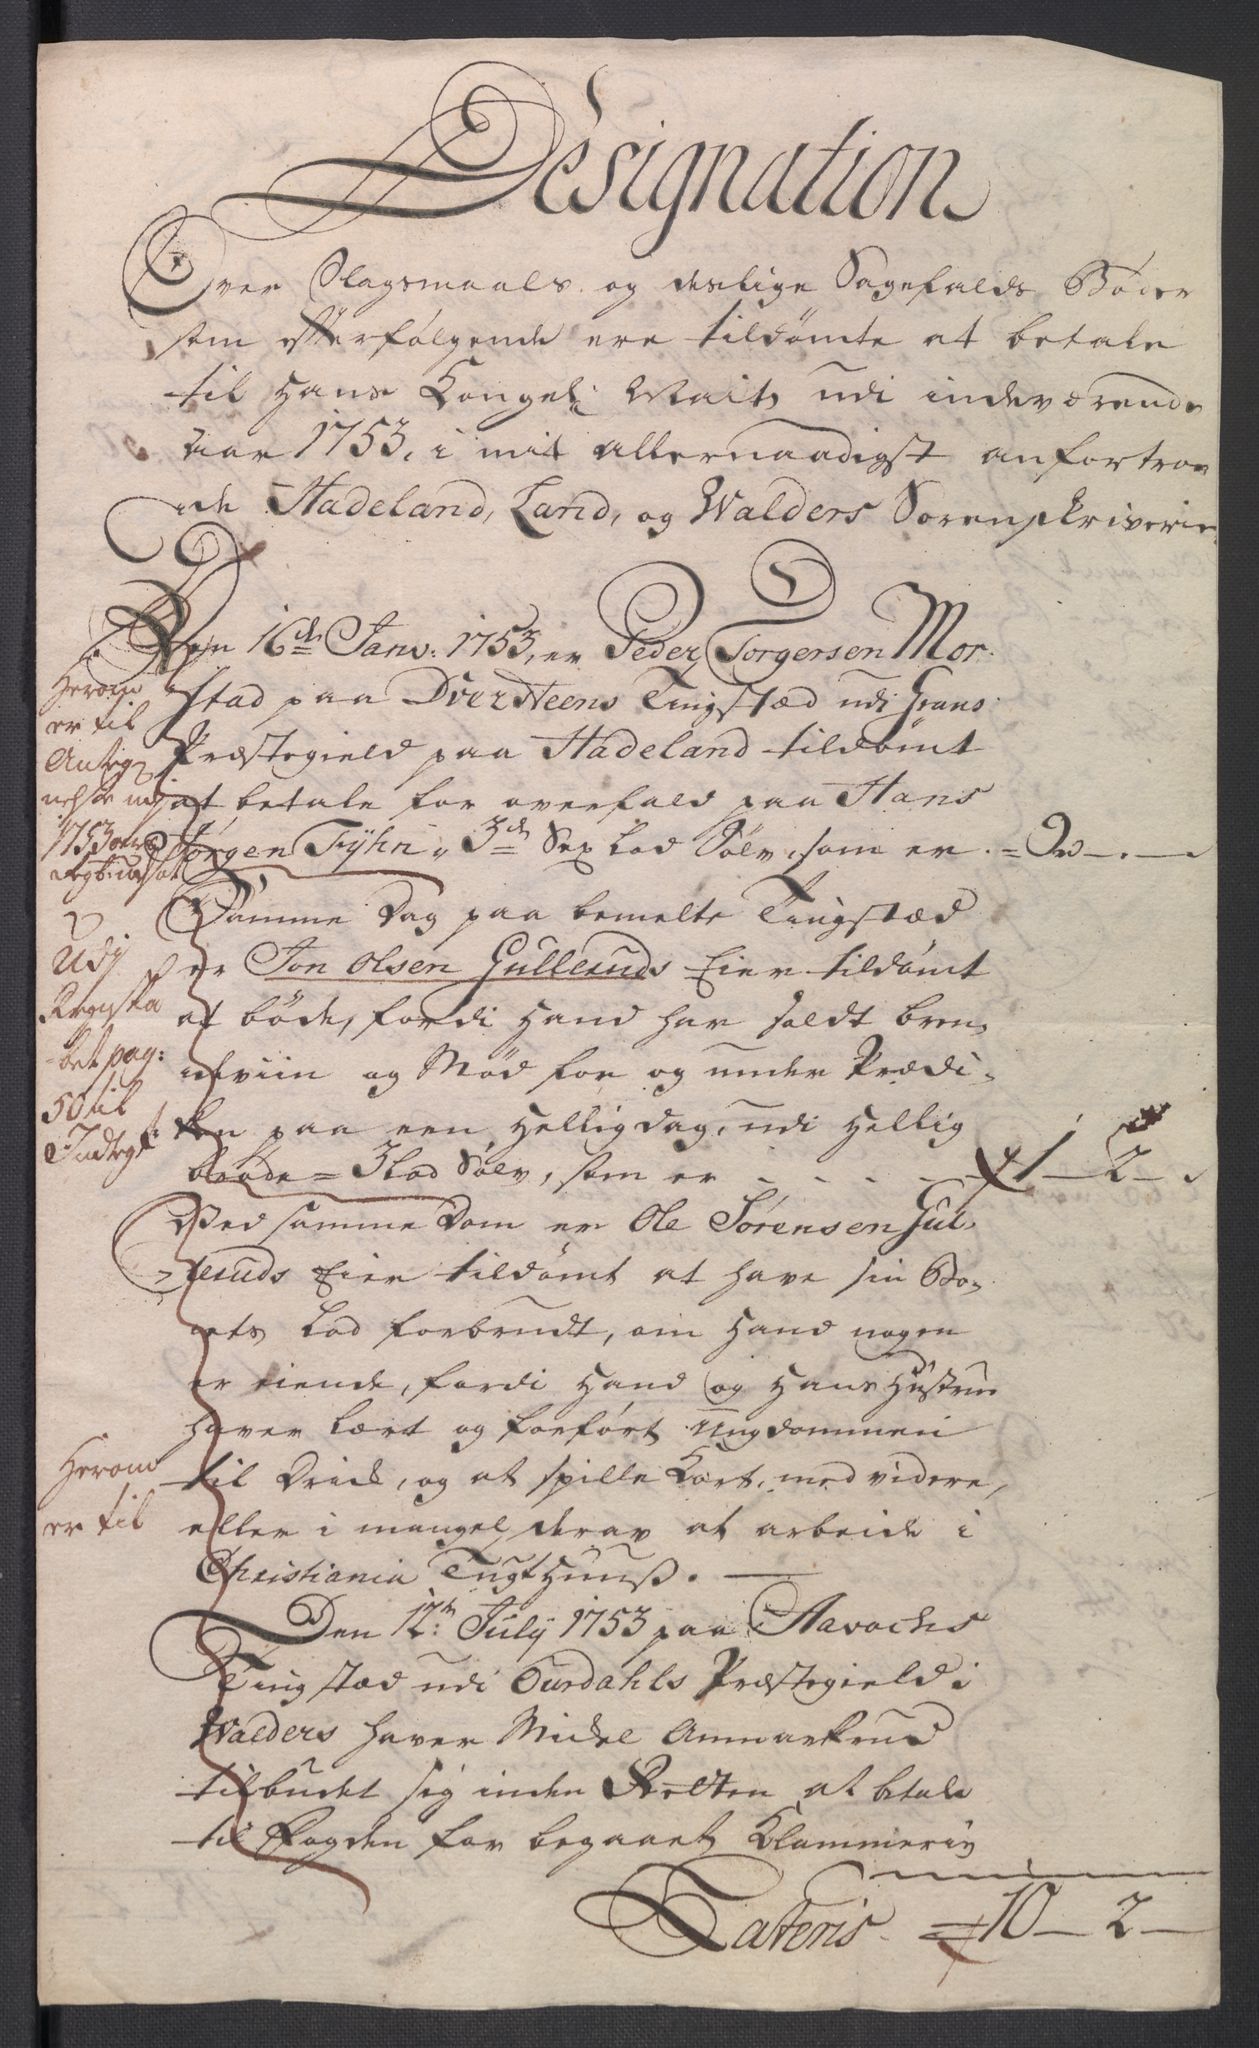 Designation
Over Slagsmaals og deslige Sagefalds Bøder
som efterfølgende ere tildømte at betale
til Hans Kongel: Mait, udi indeværende
aar 1753, i mit allernaadigst anfortroe
de Hadeland, Land, og Walders Sorenskriverie.
Den 16de Janv: 1753, er Peder Torgersen Mor-
stad paa Dverსteens Tingstæd udi Grans
Præstegield paa Hadeland tildømt
at betale for overfald paa Hans
Jørgen Fyhn, 3de Sex Lod Sølv, som er = 9 - . -
Samme Dag paa bemelte Tingstæd
er Jon Olsen Gulleruds Eier tildømt
at bøde, fordi Hand har soldt bren-
deviin og Mød for og under Prædi-
ken paa een Hellig dag, udi Hellig
brøde = 3 Lod Sølv, som er - - - - 1 - 2 -
Ved samme Dom er Ole Sørensen Gul-
leruds Eier tildømt at have sin Bo-
ets Lod forbrudt, om Hand nogen
er eiende, fordi Hand og Hans Hustrue
haver lært og forført Ungdommen
til Drick, og at spille Kort, med videre,
eller i mangel derav at arbeide i
Christiania Tugthuus. -
Den 12te July 1753 paa Aavochs
Tingstæd udi Ourdahls Præstegield i
Walders haver Mickel Ammerkrud
tilbudet sig inden Retten at betale
til Fogden for begaaet Klammerie
Lateris = 10 - 2 -
Herom
er til
Anteg
nelser udj
1753
Udj
Regnska
bet pag:
50 til
Indtegt
Herom
er til